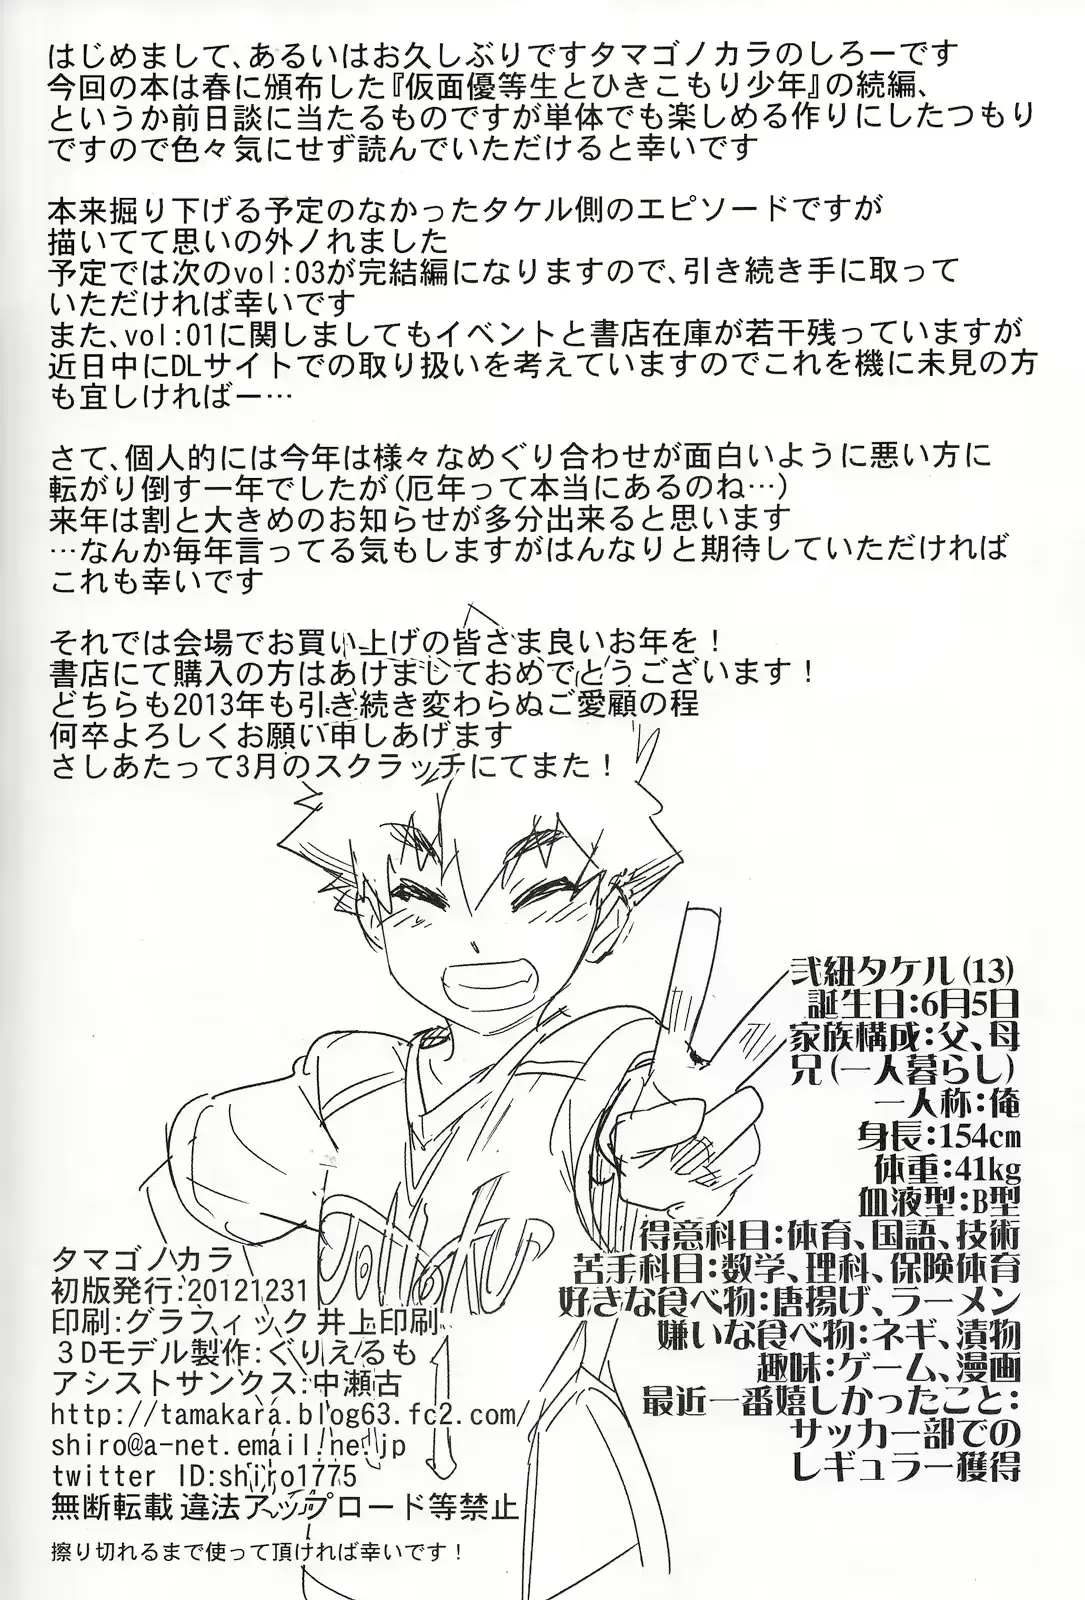 はじめまして、あるいはお久しぶりですタマゴノカラのしろーです
今回の本は春に頒布した『仮面優等生とひきこもり少年』の続編、
というか前日談に当たるものですが単体でも楽しめる作りにしたつもり
ですので色々気にせず読んでいただけると幸いです
本来掘り下げる予定のなかったタケル側のエピソードですが
描いてて思いの外ノれました
予定では次のvol:03が完結編になりますので、引き続き手に取って
いただければ幸いです
また、vol:01に関しましてもイベントと書店在庫が若干残っていますが
近日中にDLサイトでの取り扱いを考えていますのでこれを機に未見の方
も宜しければー…
さて、個人的には今年は様々なめぐり合わせが面白いように悪い方に
転がり倒す一年でしたが(厄年って本当にあるのね…)
来年は割と大きめのお知らせが多分出来ると思います
…なんか毎年言ってる気もしますがはんなりと期待していただければ
これも幸いです
それでは会場でお買い上げの皆さま良いお年を！
書店にて購入の方はあけましておめでとうございます！
どちらも2013年も引き続き変わらぬご愛顧の程
何卒よろしくお願い申しあげます
さしあたって3月のスクラッチにてまた！
弐紐タケル(13)
誕生日:6月5日
家族構成:父、母
兄(一人暮らし)
一人称:俺
身長:154cm
体重:41kg
血液型:B型
得意科目:体育、国語、技術
苦手科目:数学、理科、保険体育
好きな食べ物:唐揚げ、ラーメン
嫌いな食べ物:ネギ、漬物
趣味:ゲーム、漫画
最近一番嬉しかったこと:
サッカー部での
レギュラー獲得
タマゴノカラ
初版発行:20121231
印刷:グラフィック 井上印刷
３Dモデル製作:ぐりえるも
アシストサンクス:中瀬古
http://tamakara.blog63.fc2.com/
shiro@a-net.email.ne.jp
twitter ID:shiro1775
無断転載 違法アップロード等禁止
擦り切れるまで使って頂ければ幸いです！